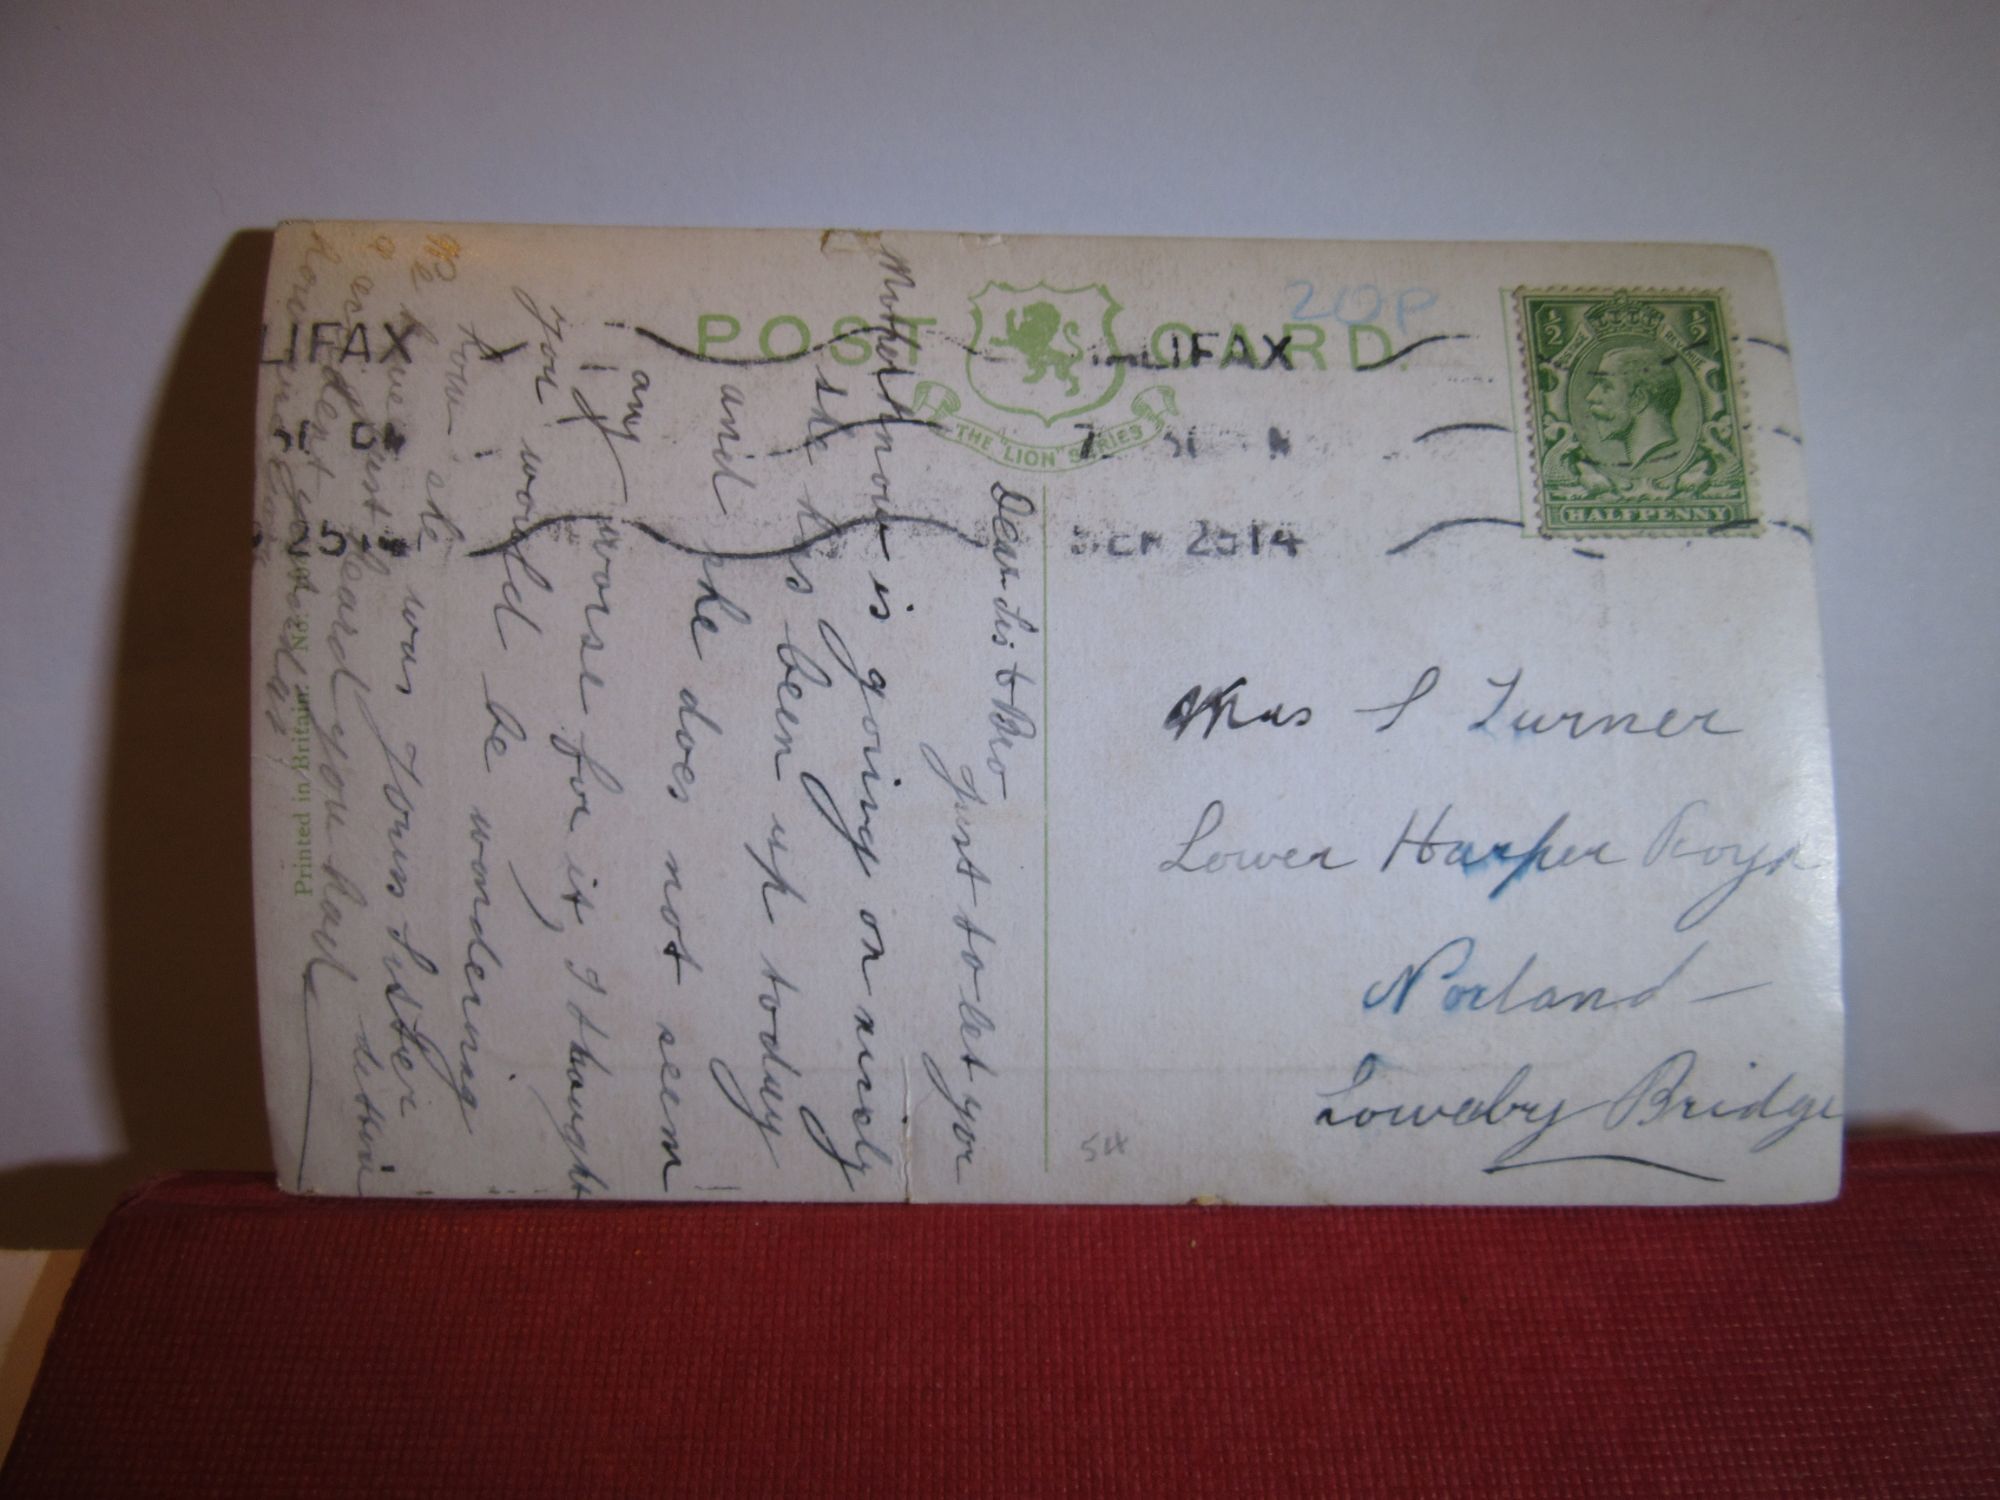 POST CARD.
20P
THE "LION" SERIES
HALIFAX
7. SP N
SEP 25 14
½ ½
HALFPENNY
Mrs S Turner
Lower Harper Royd
Norland
Soweby Bridge
54
Dear Sis & Bro
Just to let you
Mother now is going on nicely
she has been up today
and she does not seem
any worse for it, I thought
you would be wondering
how she was Yours Sister
We have just heard you have
had an accident ditto
Printed in Britain. No.
LIFAX
25 14